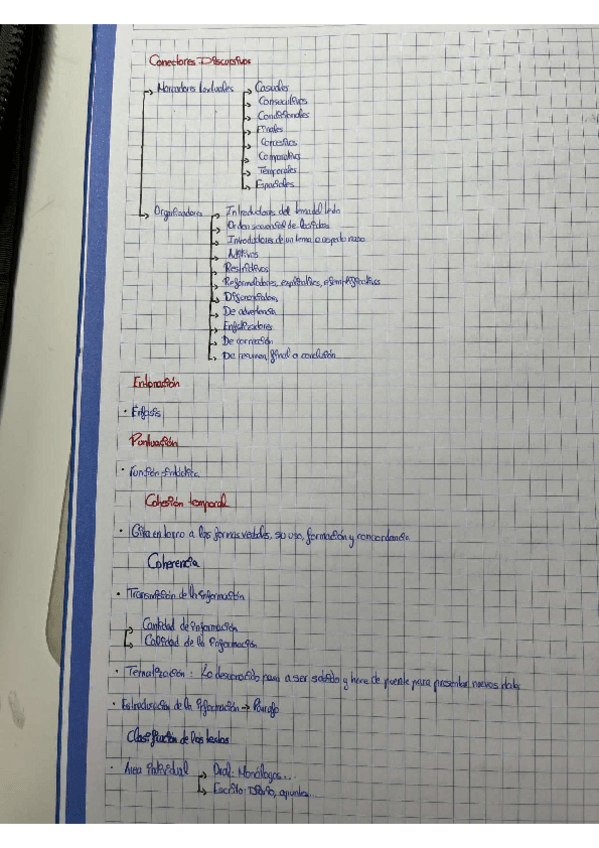 Conectores Discursivos
Marcadores textuales
Causales
Consecutivos
Condicionales
Finales
Concesivos
Comparativos
Temporales
Espaciales
Organizadores
Introductores del tema del texto
Orden secuencial de las ideas
Introductores de un tema o aspecto nuevo
Aditivos
Restrictivos
Reformuladores, explicativos, ejemplificativos
De advertencia
Enfatizadores
De corrección
De resumen, final o conclusión
Entonación
· Énfasis
Puntuación
· Función sintáctica
Cohesión temporal
· Gira en torno a las formas verbales, su uso, formación y concordancia
Coherencia
· Transmisión de la información
Cantidad de información
Calidad de la información
· Tematización: Lo desconocido pasa a ser sabido y hace de puente para presentar nuevos datos
· Estructuración de la información → Párrafo
Clasificación de los textos
· Área individual
Oral: Monólogos...
Escrito: Diario, apuntes...